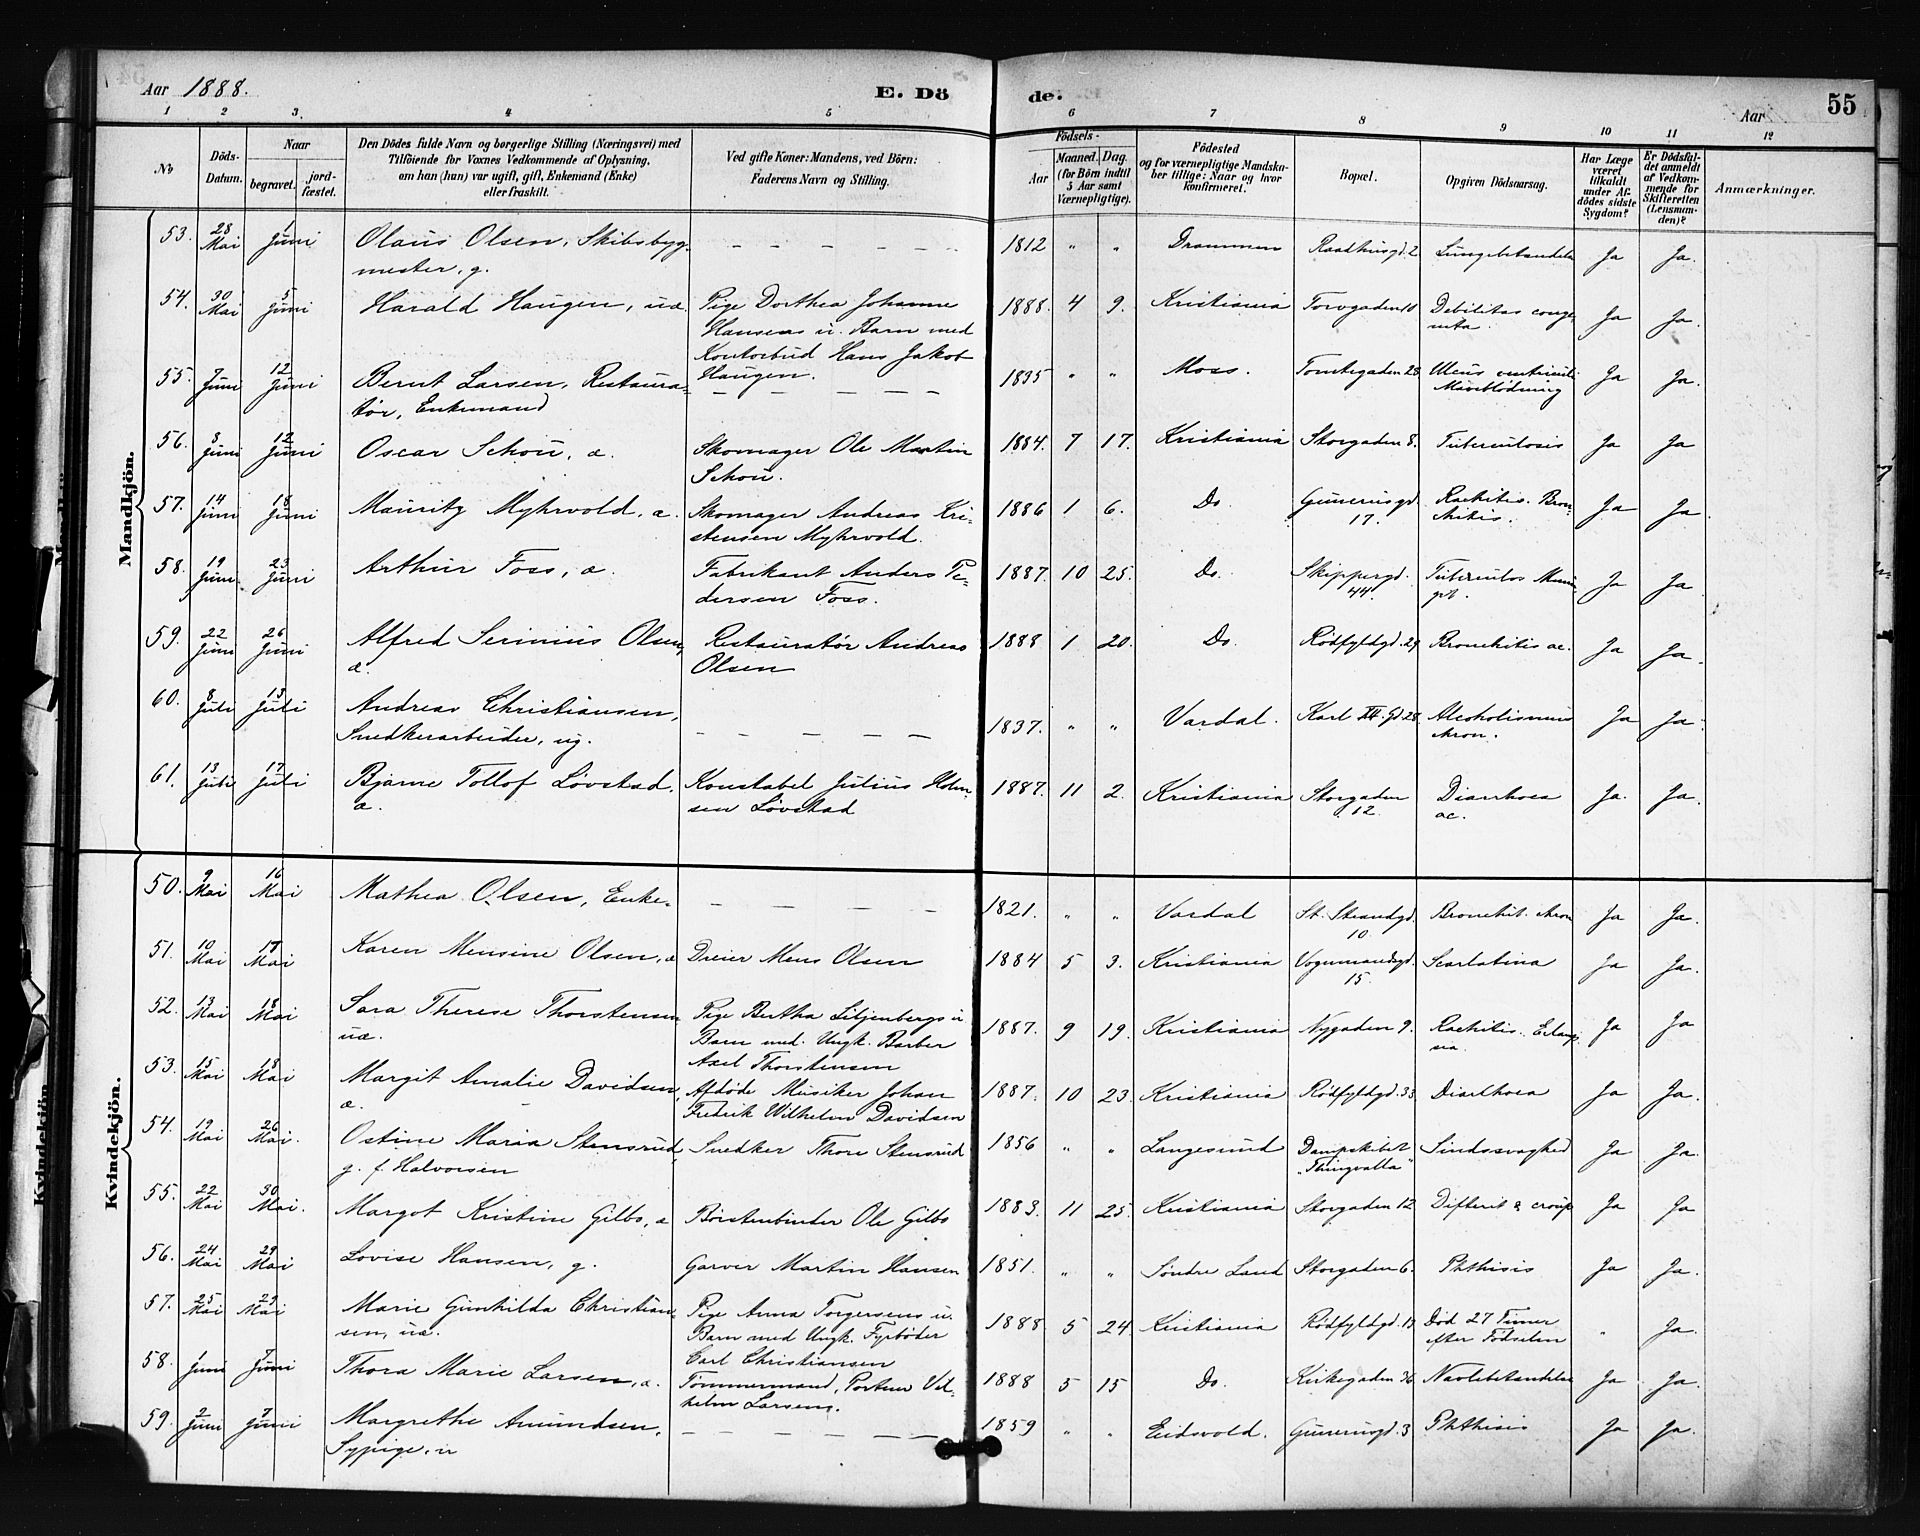 Aar 1888. E. Dö de. Aar 55
1 2 3. 4 5 6 7 8 9 10 11 12
No
Döds-Datum.
Naar
begravet. jordfæstet.
Den Dödes fulde Navn og borgerlige Stilling (Næringsvei) med
Tilföiende for Voxnes Vedkommende af Oplysning,
om han (hun) var ugift, gift, Enkemand (Enke)
eller fraskilt.
Ved gifte Koner: Mandens, ved Börn:
Faderens Navn og Stilling.
Födsels-
Aar Maaned. Dag.
(for Börn indtil
5 Aar samt
Værnepligtige).
Födested
og for værnepligtige Mandska-
ber tillige: Naar og hvor
konfirmeret.
Bopæl.
Opgiven Dödsaarsag.
Har Læge
været
tilkaldt
under Af-
dödes sidste
Sygdom?
Er Dödsfal-
det anmeldt
af Vedkom-
mende for
Skifteretten
(Lensman-
den)?
Anmærkninger.
Mandkjön.
53. 28 Mai 1 Juni Olaus Olsen, Skibsbyg- — — — — — 1812 " " Drammen Raadhusgd. 2 Lungebetændelse Ja Ja.
mester, g.
54. 30 Mai 5 Juni Harald Haugen, uæ. Pige Dorthea Johanne 1888. 4 9. Kristiania Torvgaden 10 Debilitas conge- Ja Ja.
Hansens u. Barn med nita.
Kontorbud Hans Jakob
Haugen.
55. 7 Juni 12 Juni Bernt Larsen, Restaura- — — — — — 1835 " " Moss. Tomtegaden 28 Ulcus ventriculi Ja Ja.
tør, Enkemand Maveblödning
56. 8 Juni 12 Juni Oscar Schou, æ. Skomager Ole Martin 1884. 7 17. Kristiania Storgaden 8. Tuberculosis Ja Ja
Schou.
57. 14 Juni 18 Juni Mauritz Myhrvold, æ. Skomager Andreas Kri- 1886 1 6. Do. Gunerusgd. Rachitis. Bron- Ja Ja
stensen Myhrvold. 17. chitis.
58. 19 Juni 23 Juni Arthur Foss, æ. Fabrikant Anders Pe- 1887. 10 25. Do. Skippergd. Tuberculos Ja Ja.
dersen Foss. 44.
59. 22 Juni 26 Juni Alfred Serinius Olsen, Restauratør Andreas 1888 1 20. Do. Rödfyldgd. 29 Bronchitis ac. Ja Ja.
æ. Olsen
60. 8 Juli 13 Juli Andreas Christiansen, — — — — — 1837. " " Vardal. Karl XII. Gd 28 Alcoholismus Ja Ja.
Snedkerarbeider, ug. chron.
61. 13 Juli 17 Juli Bjarne Tollof Lövstad, Konstabel Julius Holm- 1887. 11 2. Kristiania Storgaden Diarrhoea Ja. Ja.
æ. sen Lövstad 12. ac.
Kvindekjön.
50. 9 Mai 16 Mai Mathea Olsen, Enke. — — — — 1821. " " Vardal St. Strandgd. Bronchit. chron Ja Ja.
10.
51. 10 Mai 17 Mai Karen Mensine Olsen, æ Dreier Mens Olsen 1884 5 3. Kristiania Vognmandsgd. Scarlatina Ja Ja.
15.
52. 13 Mai 18 Mai Sara Therese Thorstensen Pige Bertha Liljenbergs u 1887. 9 19. Kristiania Nygaden 9. Rachitis. Eclamp- Ja Ja
uæ. Barn med Ungk. Barber sia.
Axel Thorstensen
53. 15 Mai 18 Mai Margit Amalie Davidsen, Afdöde Musiker Johan 1887. 10 23. Kristiania Rödfyldgd. 33 Diarrhoea Ja Ja.
æ. Fredrik Wilhelm Davidsen
54. 19 Mai 26 Mai. Ostine Maria Stensrud, Snedker Thore Stensrud 1856 " " Langesund Dampskibet Sindssvaghed Ja Ja.
g. f. Halvorsen "Thingvalla"
55. 22 Mai 30 Mai. Margot Kristine Gilbo, æ Börstenbinder Ole Gilbo 1883. 11 25. Kristiania Storgaden 12 Difterit & croup Ja Ja
56. 24 Mai 29 Mai Lovise Hansen, g. Garver Martin Hansen 1851. " " Söndre Land Storgaden 6. Phthisis Ja Ja.
57. 25 Mai 29 Mai Marie Gunhilda Christian- Pige Anna Torgersens u. 1888 5 24 Kristiania Rödfyldgd. 13 Död 27 Timer " Ja.
sen, uæ. Barn med Ungk. Fyrböder efter Födselen
Carl Christiansen
58. 1 Juni 7 Juni Thora Marie Larsen, æ. Tömmermand, Portner Vil- 1888 5 15 Do. Kirkegaden 36 Navlebetændelse Ja Ja.
helm Larsens.
59. 2 Juni 7 Juni Margrethe Amundsen, — — — — — 1859 " " Eidsvold. Gunerusgd. 3 Phthisis Ja Ja.
Sypige, u